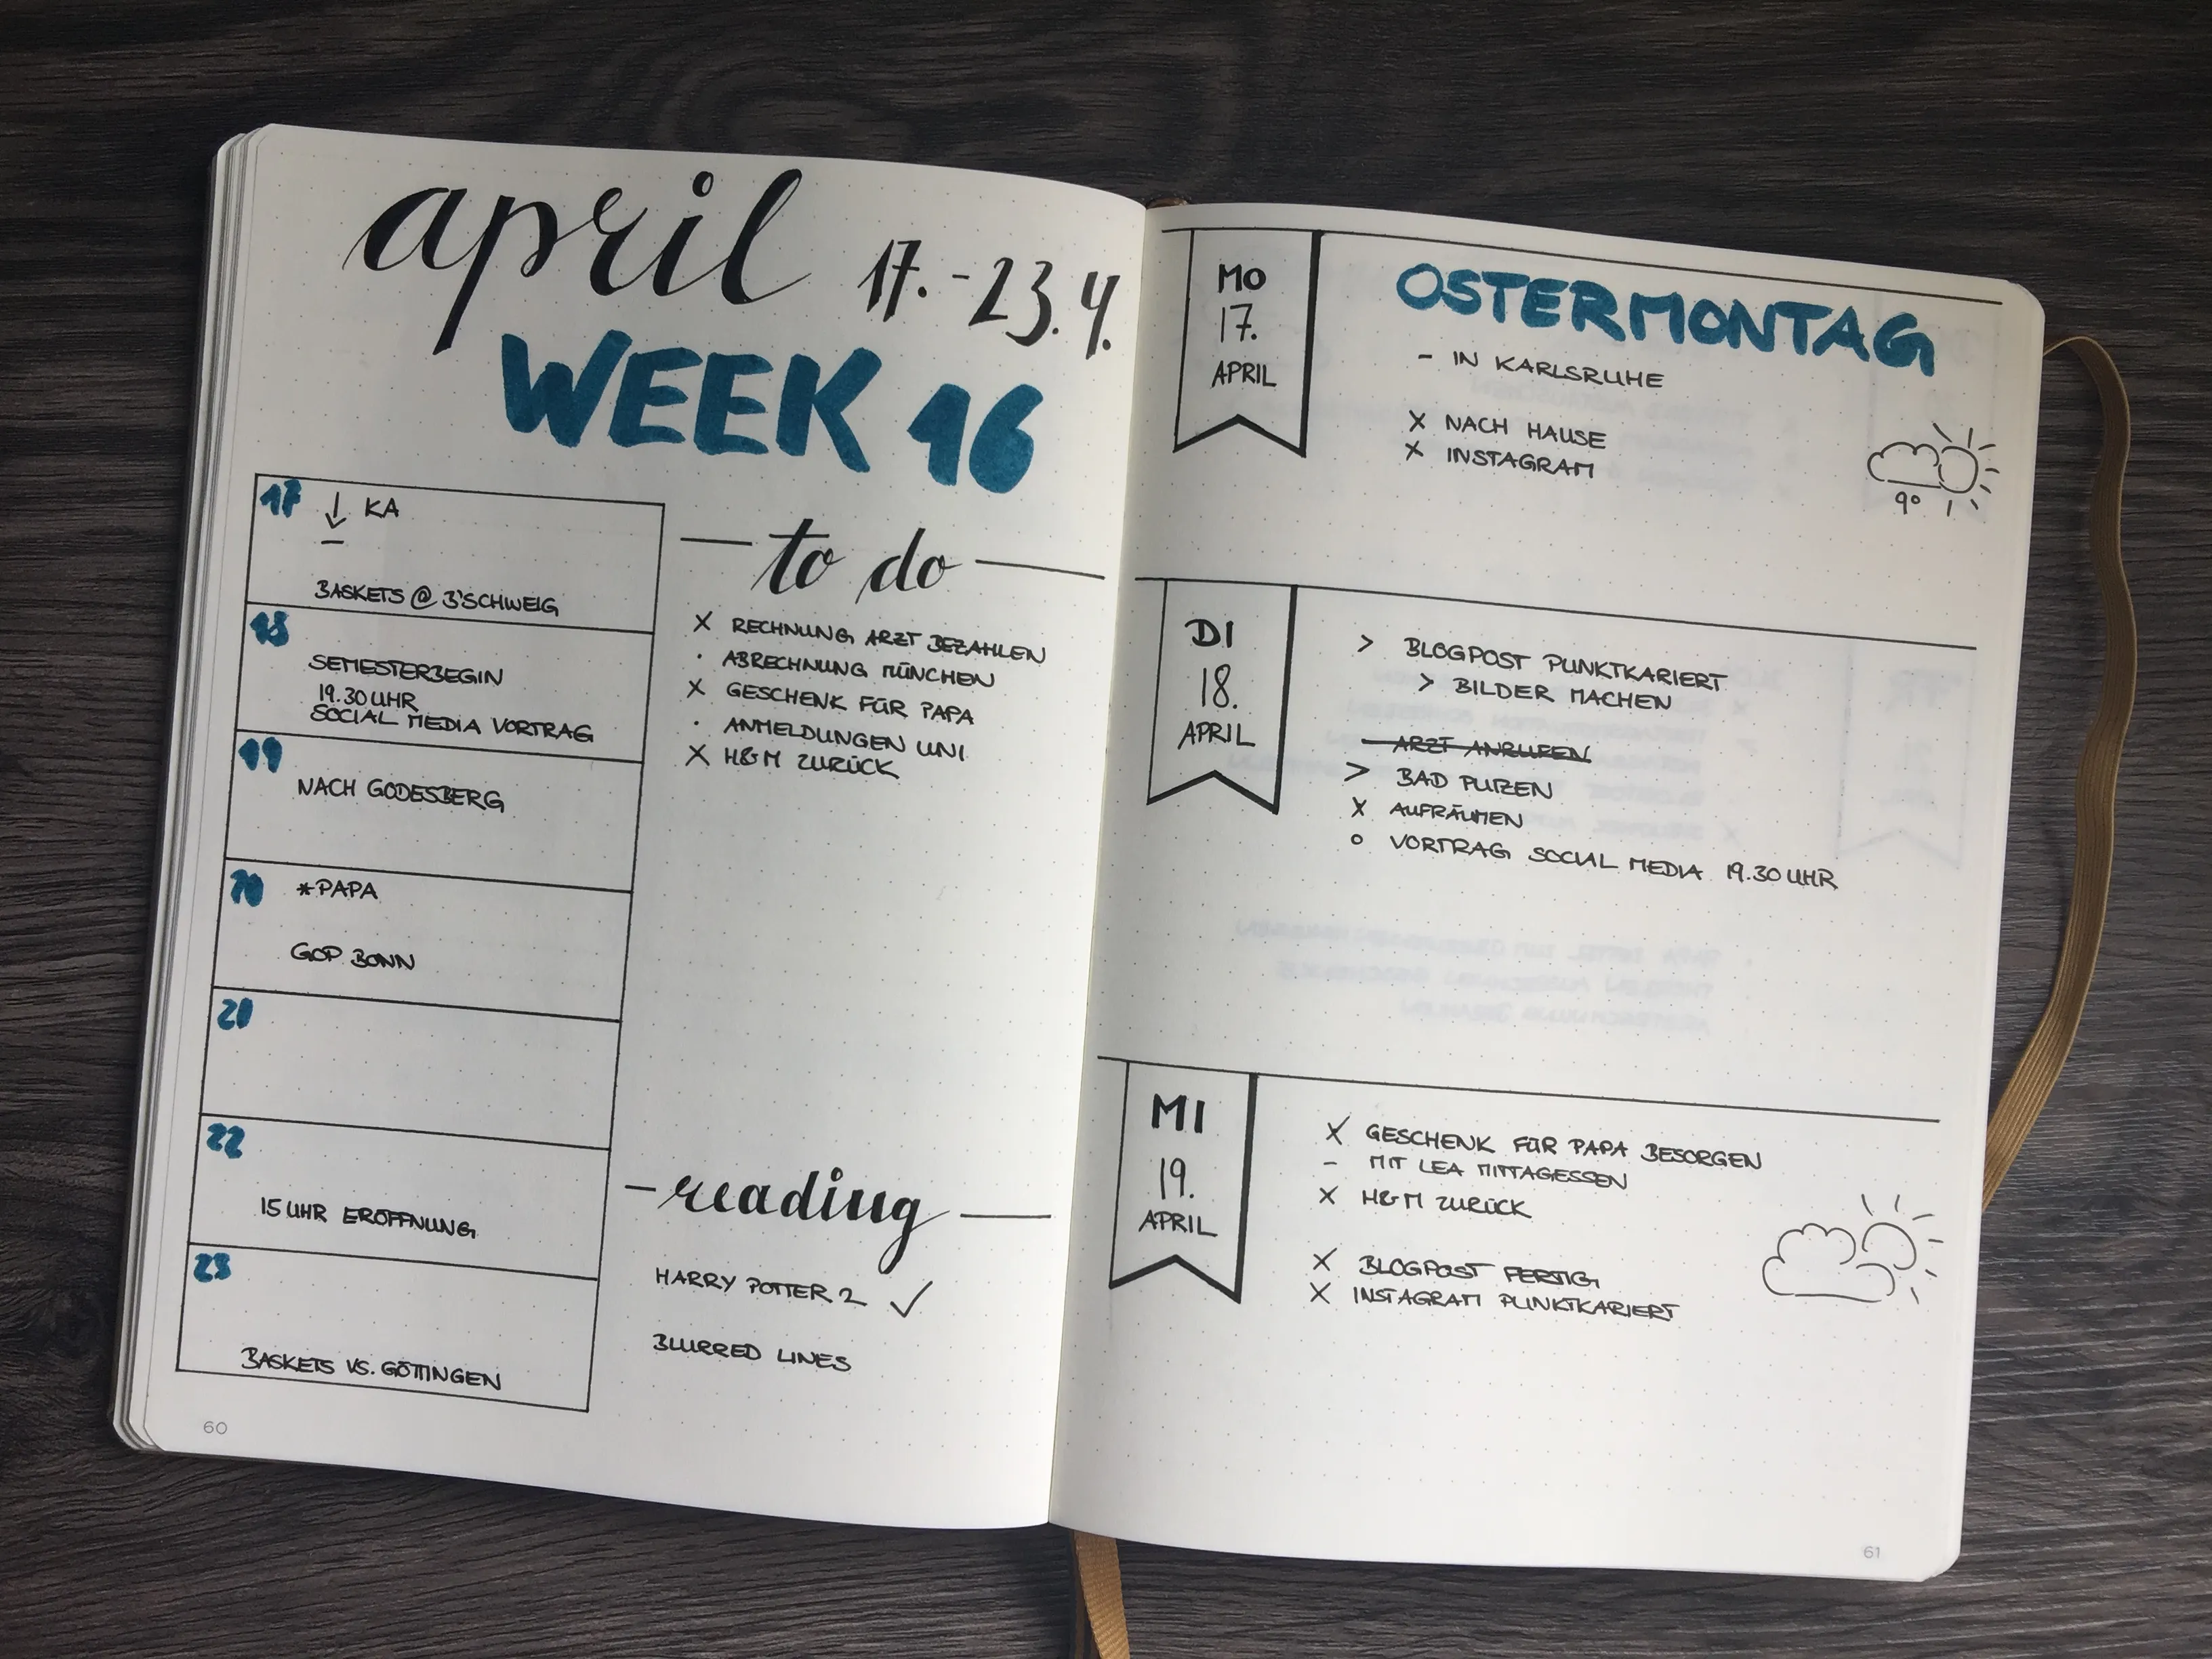 april 17.-23.4.
WEEK 16
17 ↓ KA
BASKETS @ B'SCHWEIG
18
SEMESTERBEGIN
19.30 UHR
SOCIAL MEDIA VORTRAG
19
NACH GODESBERG
20 *PAPA
GOP BONN
21
22
15 UHR ERÖFFNUNG
23
BASKETS VS. GÖTTINGEN
60
— to do —
X RECHNUNG ARZT BEZAHLEN
· ABRECHNUNG MÜNCHEN
X GESCHENK FÜR PAPA
· ANMELDUNGEN UNI
X H&M ZURÜCK
— reading —
HARRY POTTER 2 ✓
BLURRED LINES
MO
17.
APRIL
OSTERMONTAG
- IN KARLSRUHE
X NACH HAUSE
X INSTAGRAM
9°
DI
18.
APRIL
> BLOGPOST PUNKTKARIERT
> BILDER MACHEN
- ARZT ANRUFEN
> BAD PUTZEN
X AUFRÄUMEN
o VORTRAG SOCIAL MEDIA 19.30 UHR
MI
19.
APRIL
X GESCHENK FÜR PAPA BESORGEN
- MIT LEA MITTAGESSEN
X H&M ZURÜCK
X BLOGPOST FERTIG
X INSTAGRAM PUNKTKARIERT
61